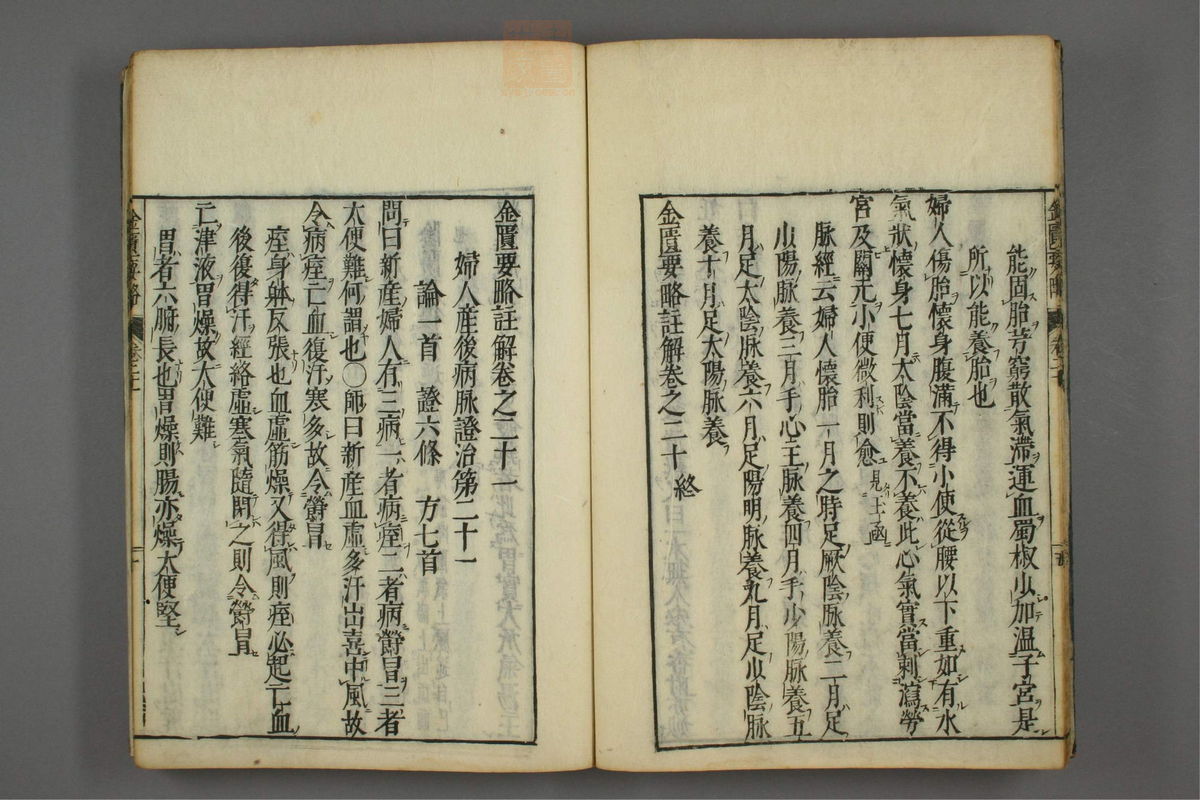 能固胎芎窮散氣滯運血蜀椒少加温子宮是
所以能養胎也
婦人傷胎懷身腹滿不得小便從腰以下重如有水
氣狀懷身七月太陰當養不養此心氣實當刺瀉勞
宮及關元小便微利則愈 見玉函
脉經云婦人懷胎一月之時足厥陰脉養二月足
少陽脉養三月手心主脉養四月手少陽脉養五
月足太陰脉養六月足陽明脉養九月足少陰脉
養十月足太陽脉養
金匱要略註解卷之二十終
金匱要略註解卷之二十一
婦人産後病脉證治第二十一
論一首 證六條 方七首
問曰新産婦人有三病一者病痓二者病欝冒三者
大便難何謂也○師曰新産血虚多汗出喜中風故
令病痓亡血復汗寒多故令欝冒
痓身躰反張也血虚筋燥又得風則痓必起亡血
後復得汗經絡虚寒氣隨閉之則令欝冒
亡津液胃燥故大便難
胃者六腑長也胃燥則腸亦燥大便堅
金匱要略